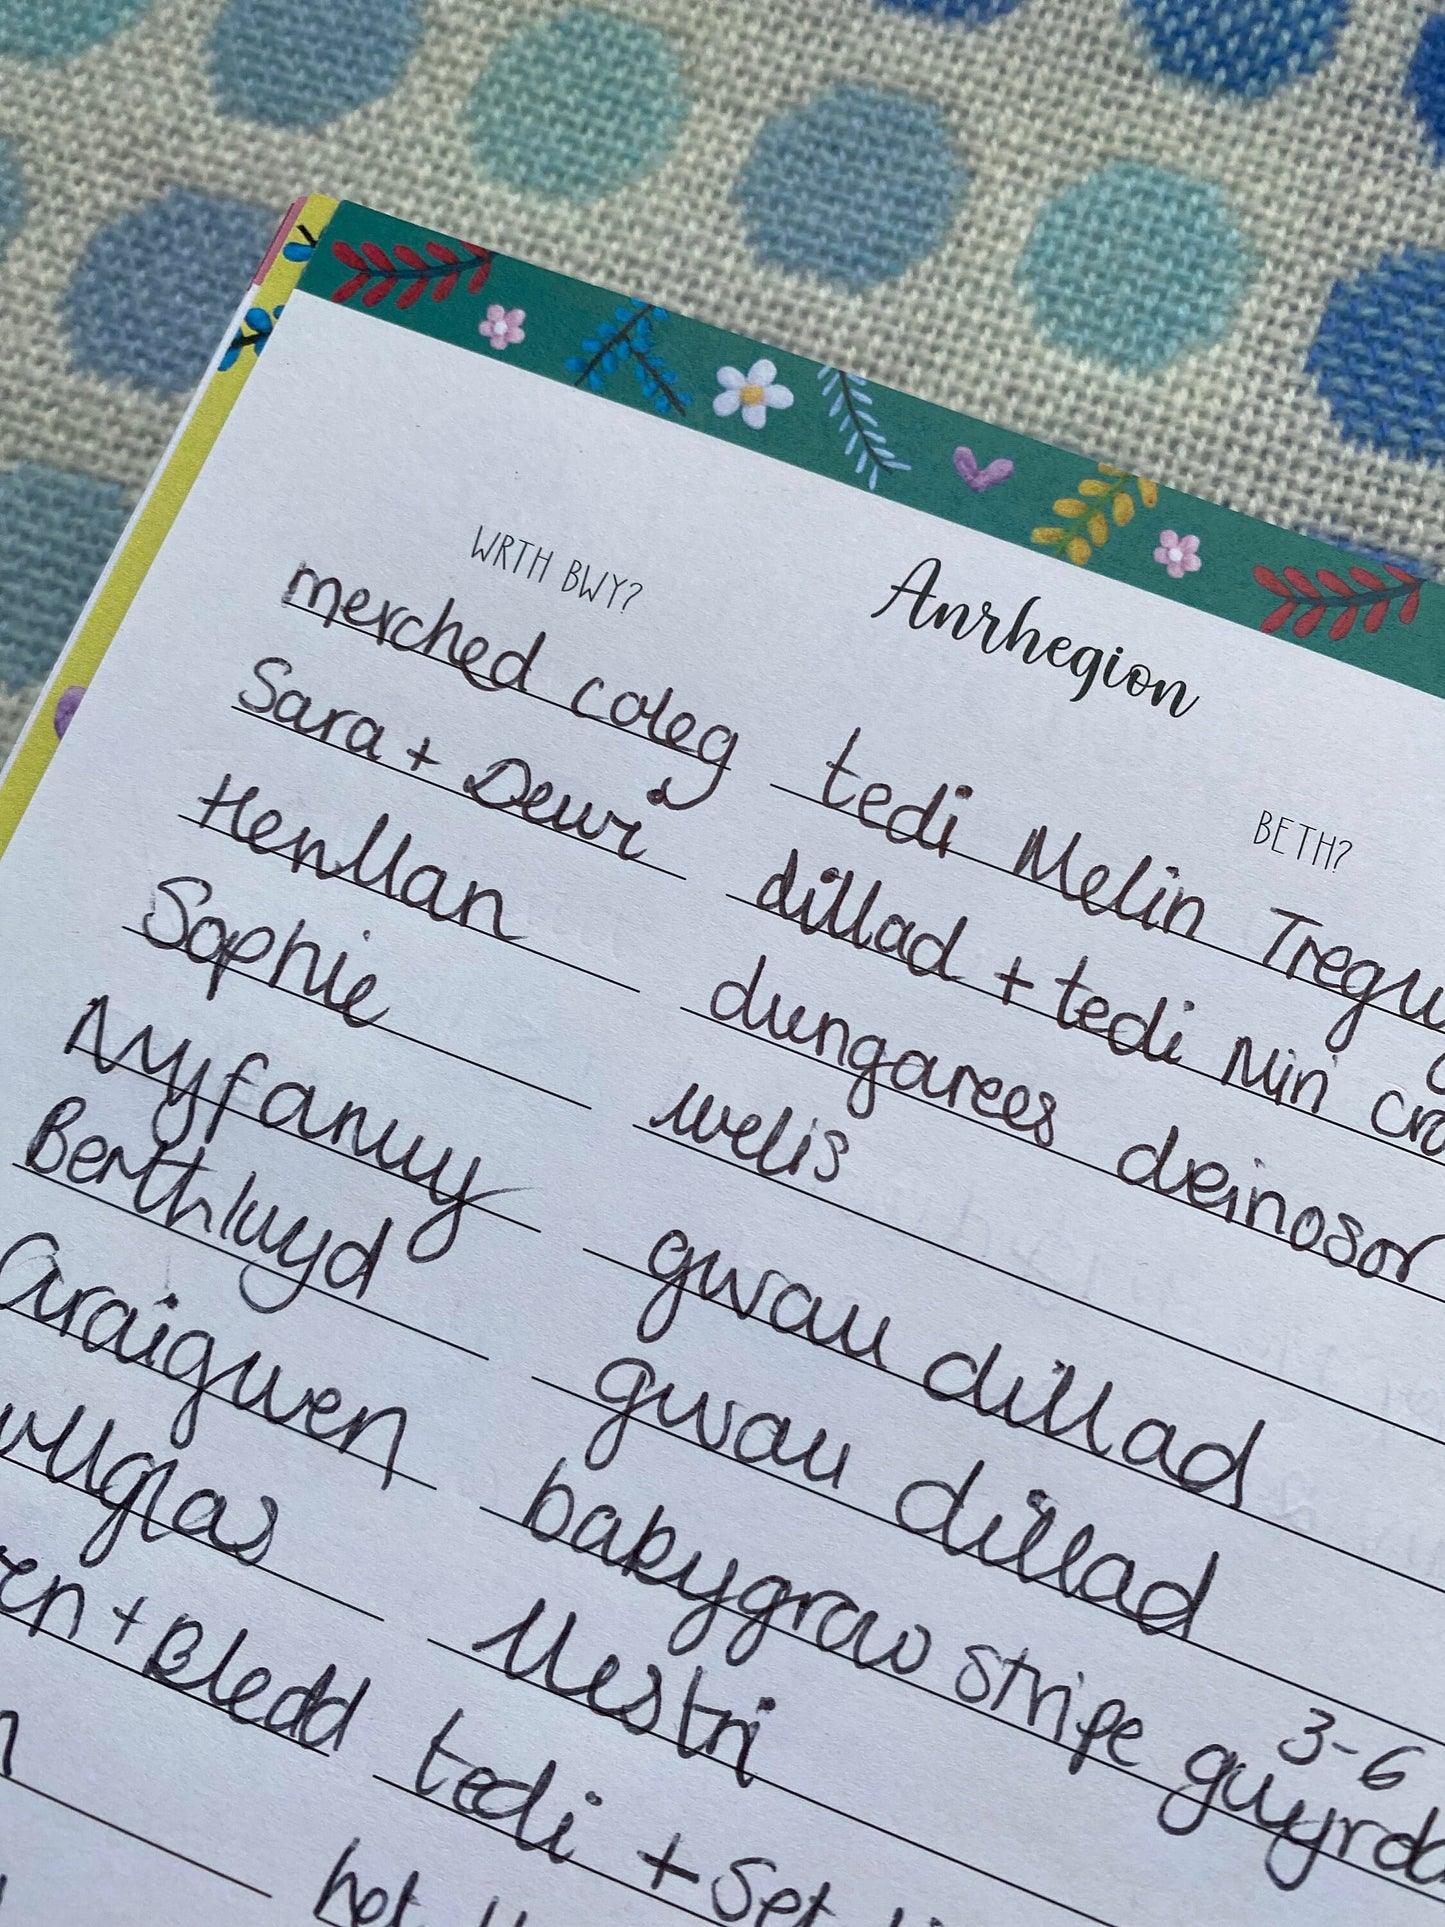 Anrhegion
WRTH BWY? BETH?
merched coleg tedi Melin Tregw
Sara + Dewi dillad + tedi Nin cro
Henllan dungarees deinosor
Sophie welis
Myfanwy gwau dillad
Berthlwyd gwau dillad
Graigwen babygrow stripe gwyrdd 3-6
llestri
+ Bledd tedi + set
hot